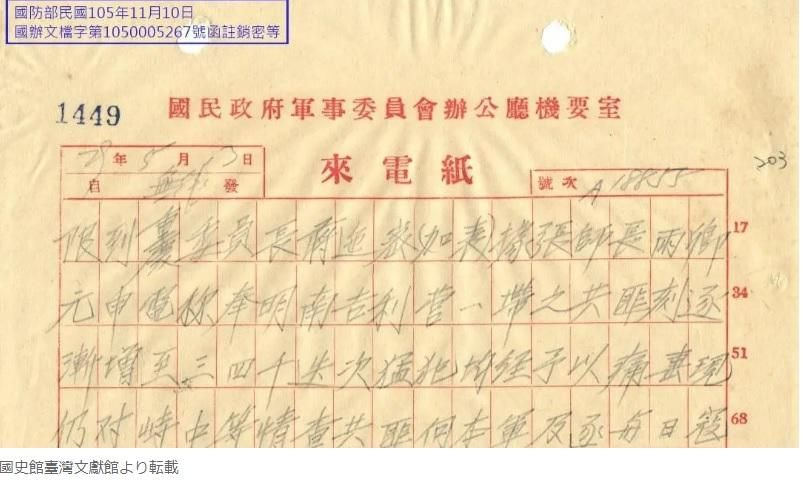 國防部民國105年11月10日
國辦文檔字第1050005267號函註銷密等
1449
國民政府軍事委員會辦公廳機要室
29年5月13日
自 發
來電紙
號次 A18855
203
限到 委員長蔣 (加表)據張師長雨卿 17
元申電称奉明南吉利营一帶之共匪刻逐 34
漸增至三四千 次猛犯均经予以痛 現 51
仍对峙中等情查共匪向本軍及 每日寇 68
國史館臺灣文獻館より転載